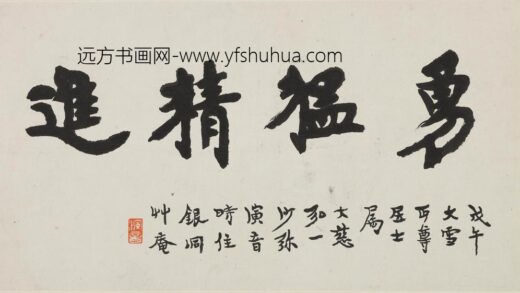 远方书画网-www.yfshuhua.com
勇猛精進
戊午
大雪
丏尊
居士
属
大慈
弘一
沙弥
演音
時住
銀洞
艸庵